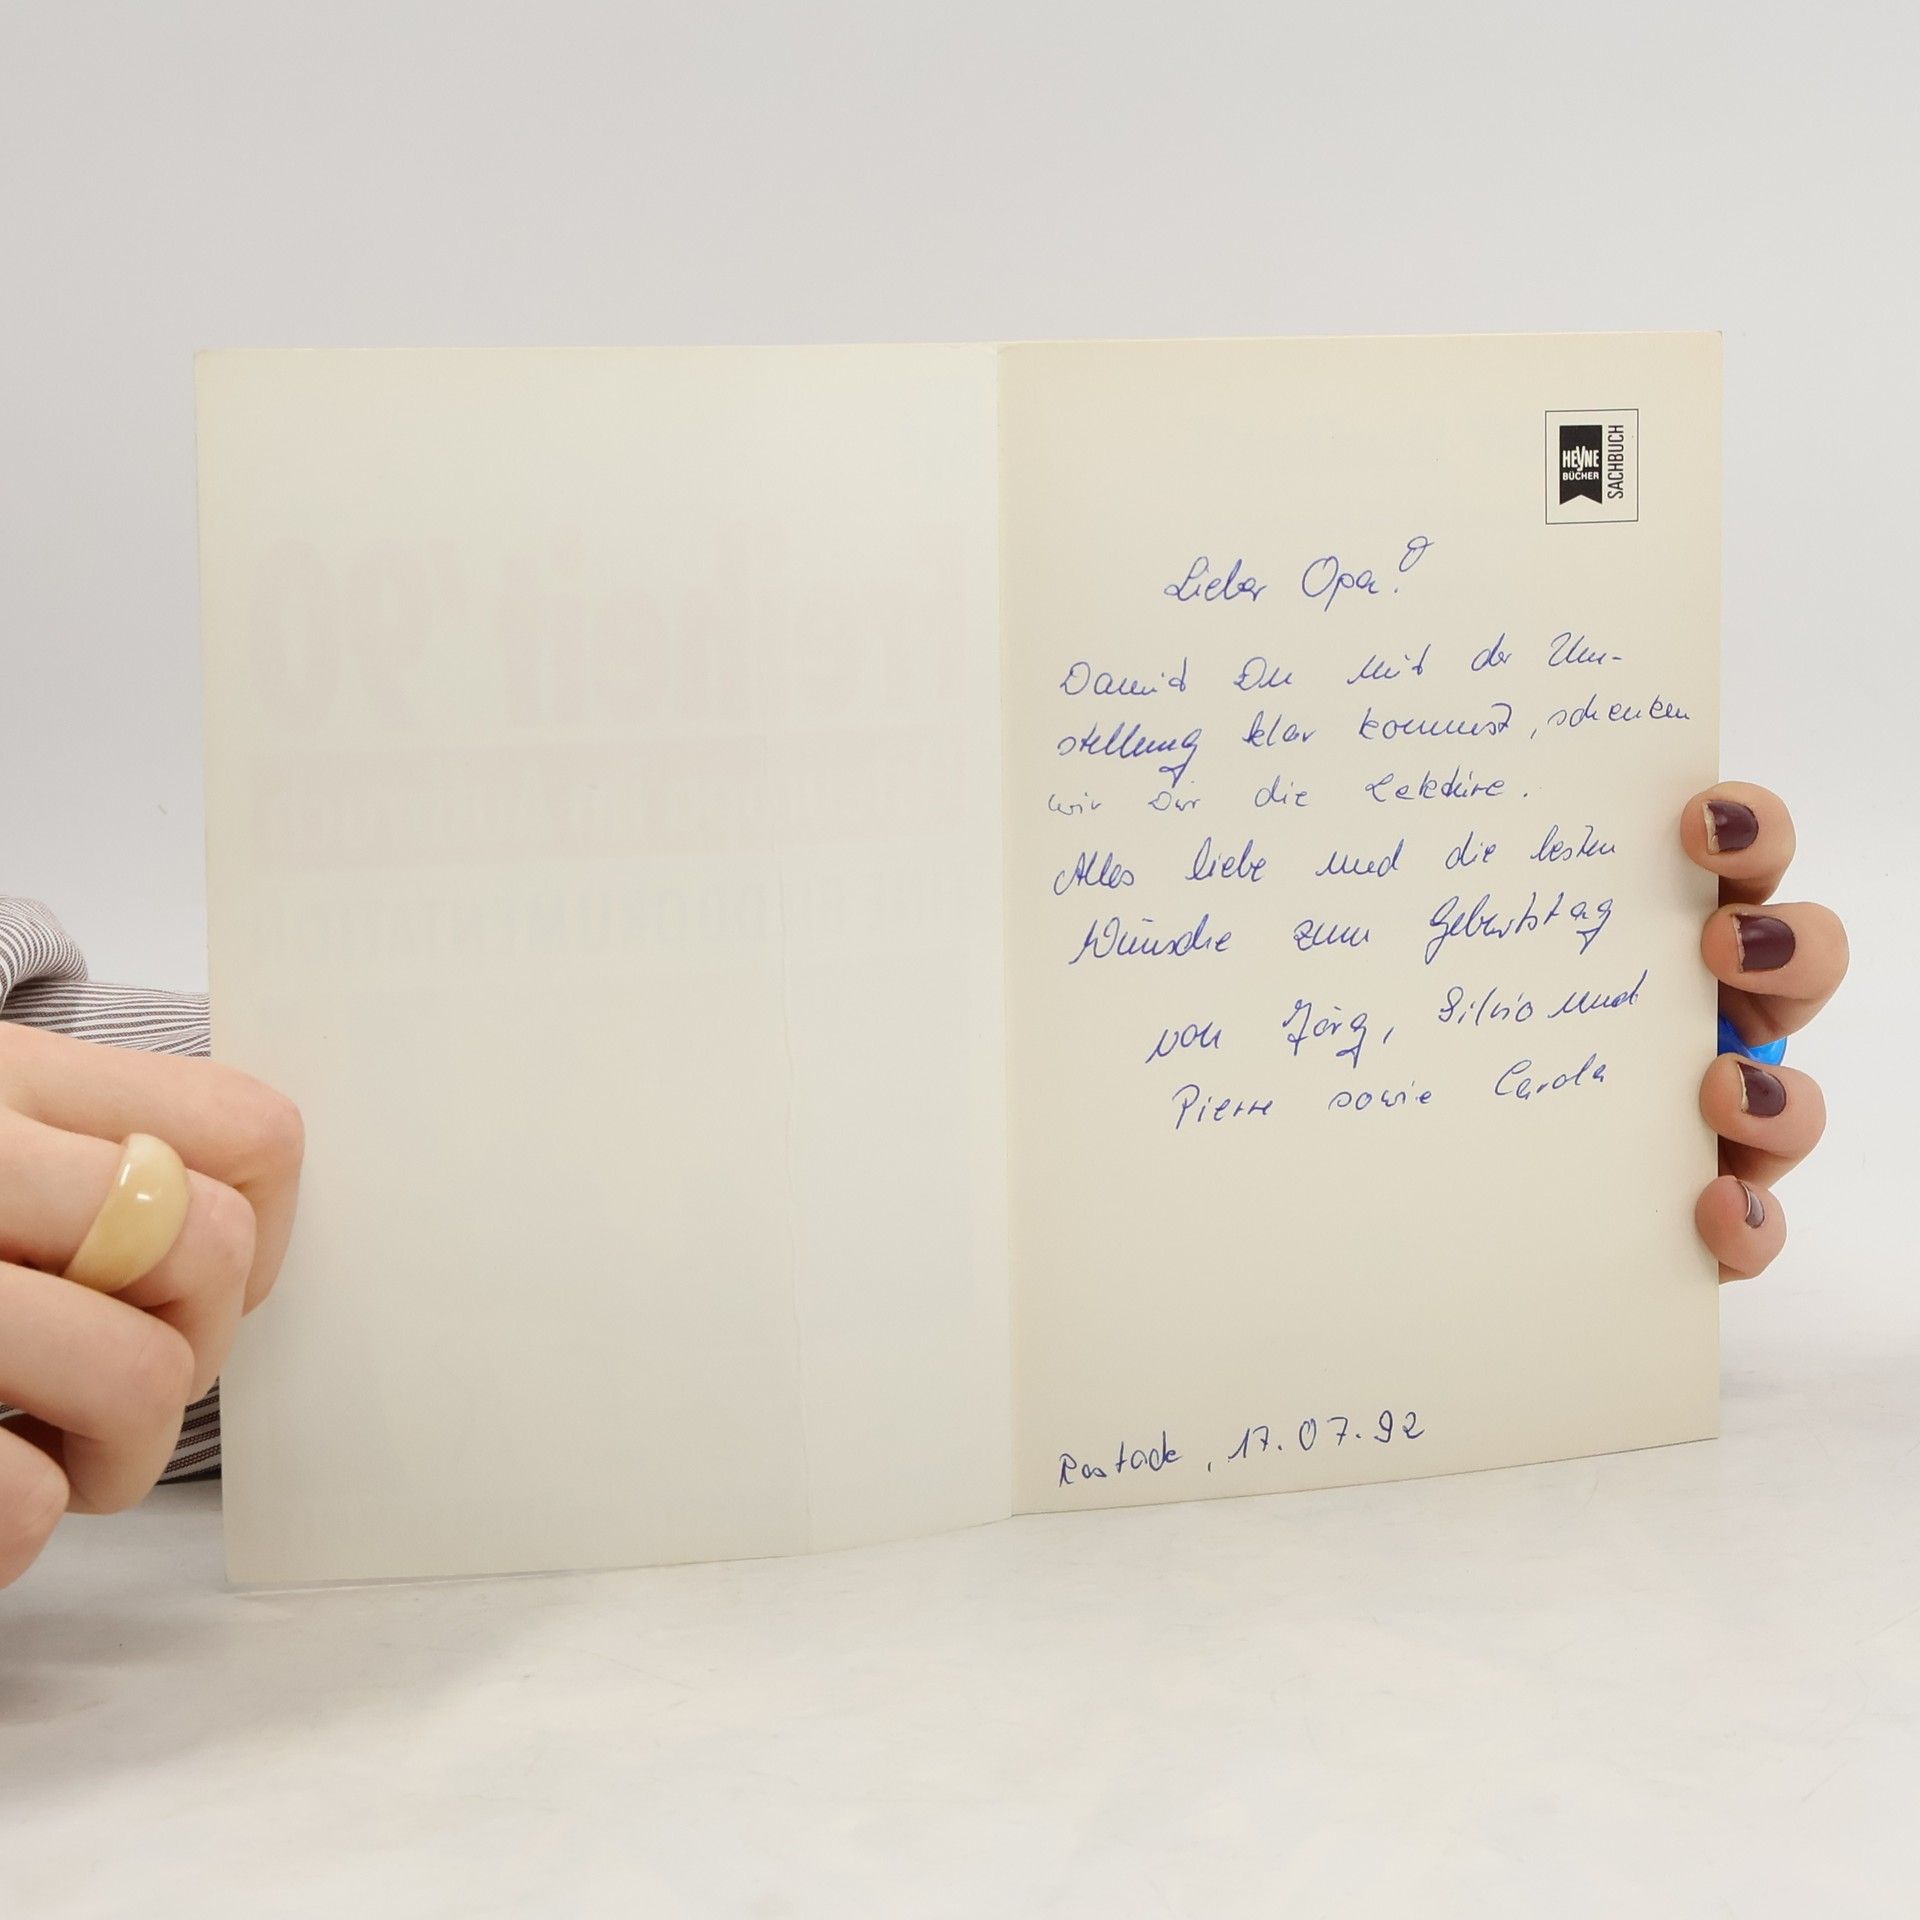 HEYNE
BÜCHER
SACHBUCH
Lieber Opa!
Damit Du mit der Um-
stellung klar kommst, schenken
wir Dir die Lektüre.
Alles liebe und die besten
Wünsche zum Geburtstag
von Jörg, Silvio und
Pierre sowie Carola
Rastade, 17.07.92